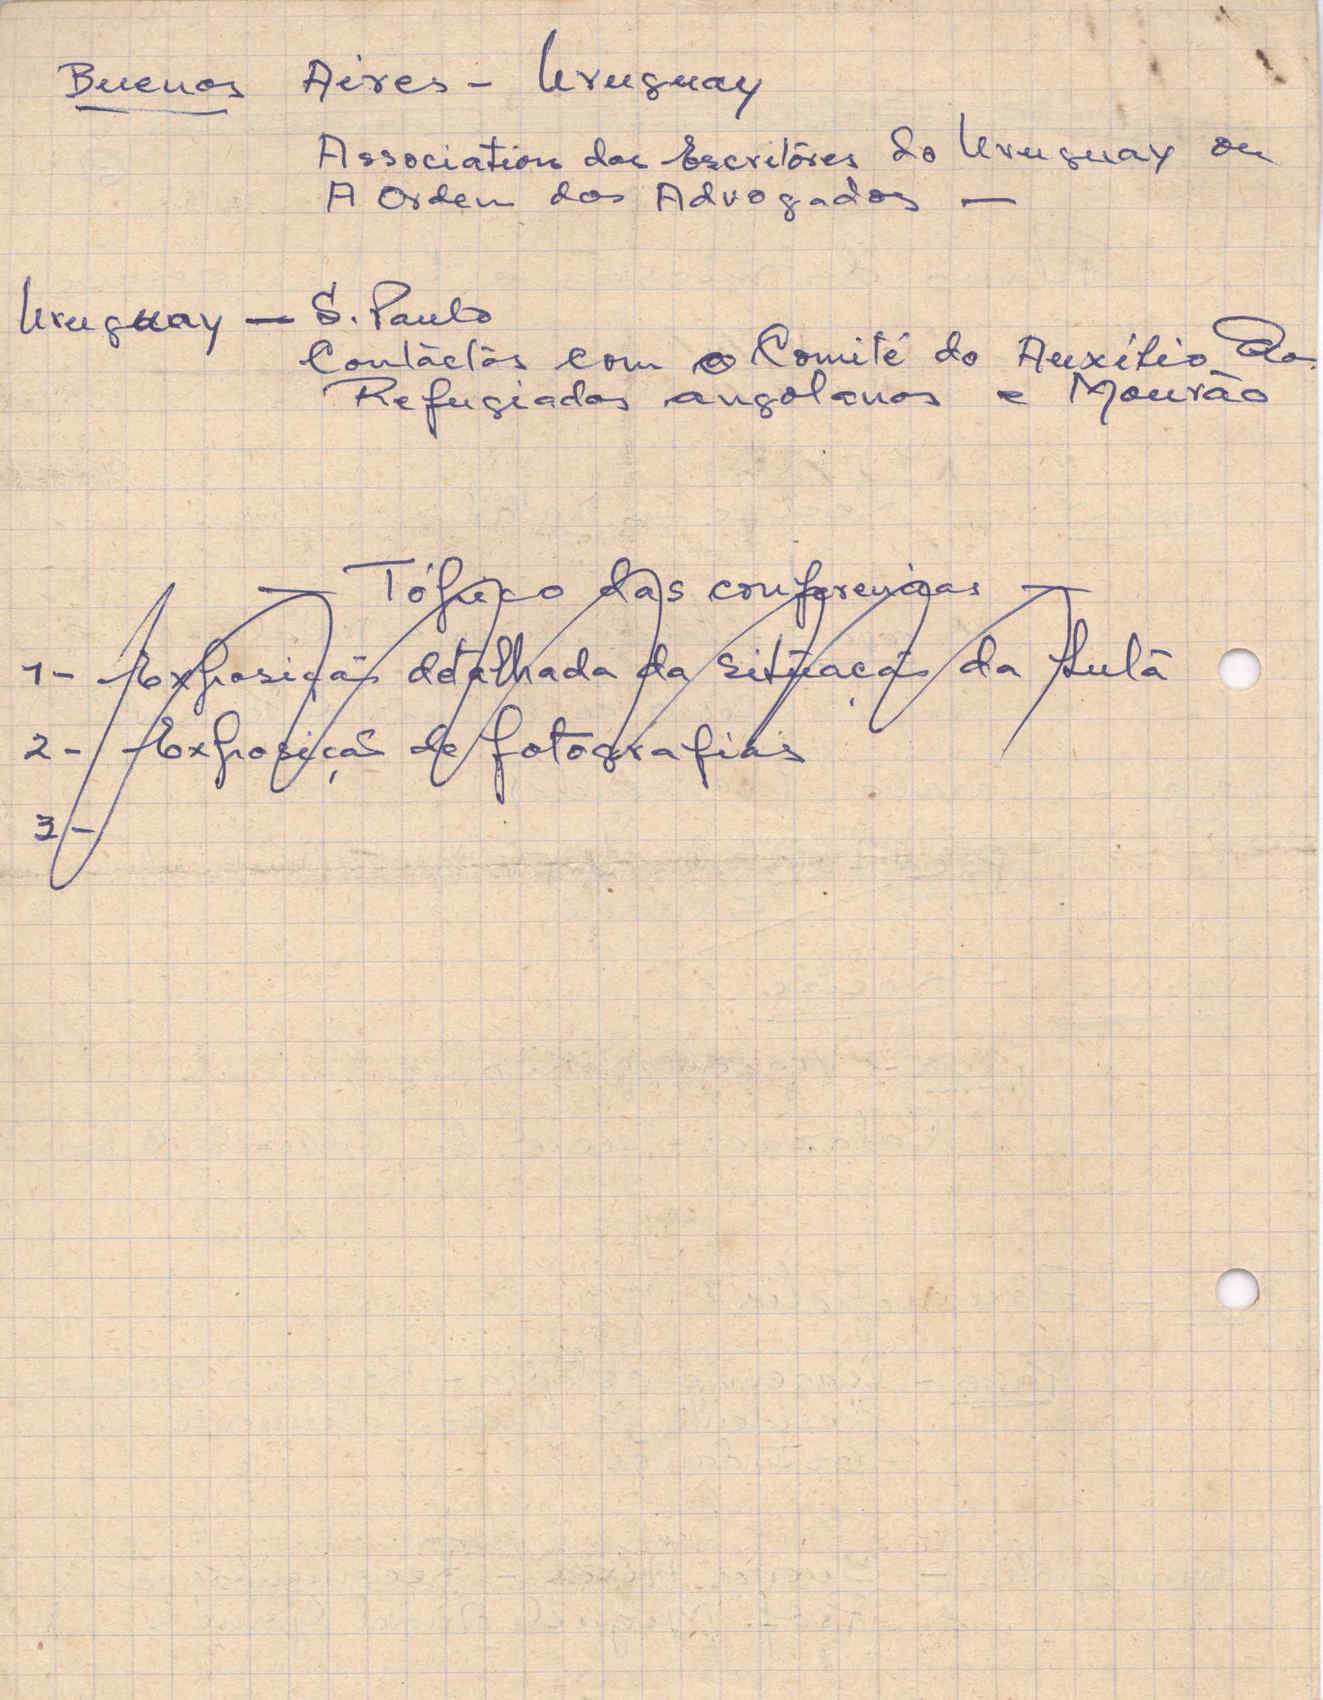 Buenos Aires - Uruguay
Association dos Escritôres do Uruguay ou
A Ordem dos Advogados —
Uruguay — S. Paulo
Contáctos com o Comité do Auxílio
Refugiados angolanos e Mourão
— Tópico das conferencias —
1 - Exposição detalhada da situação da luta
2 - Exposição de fotografias
3 -